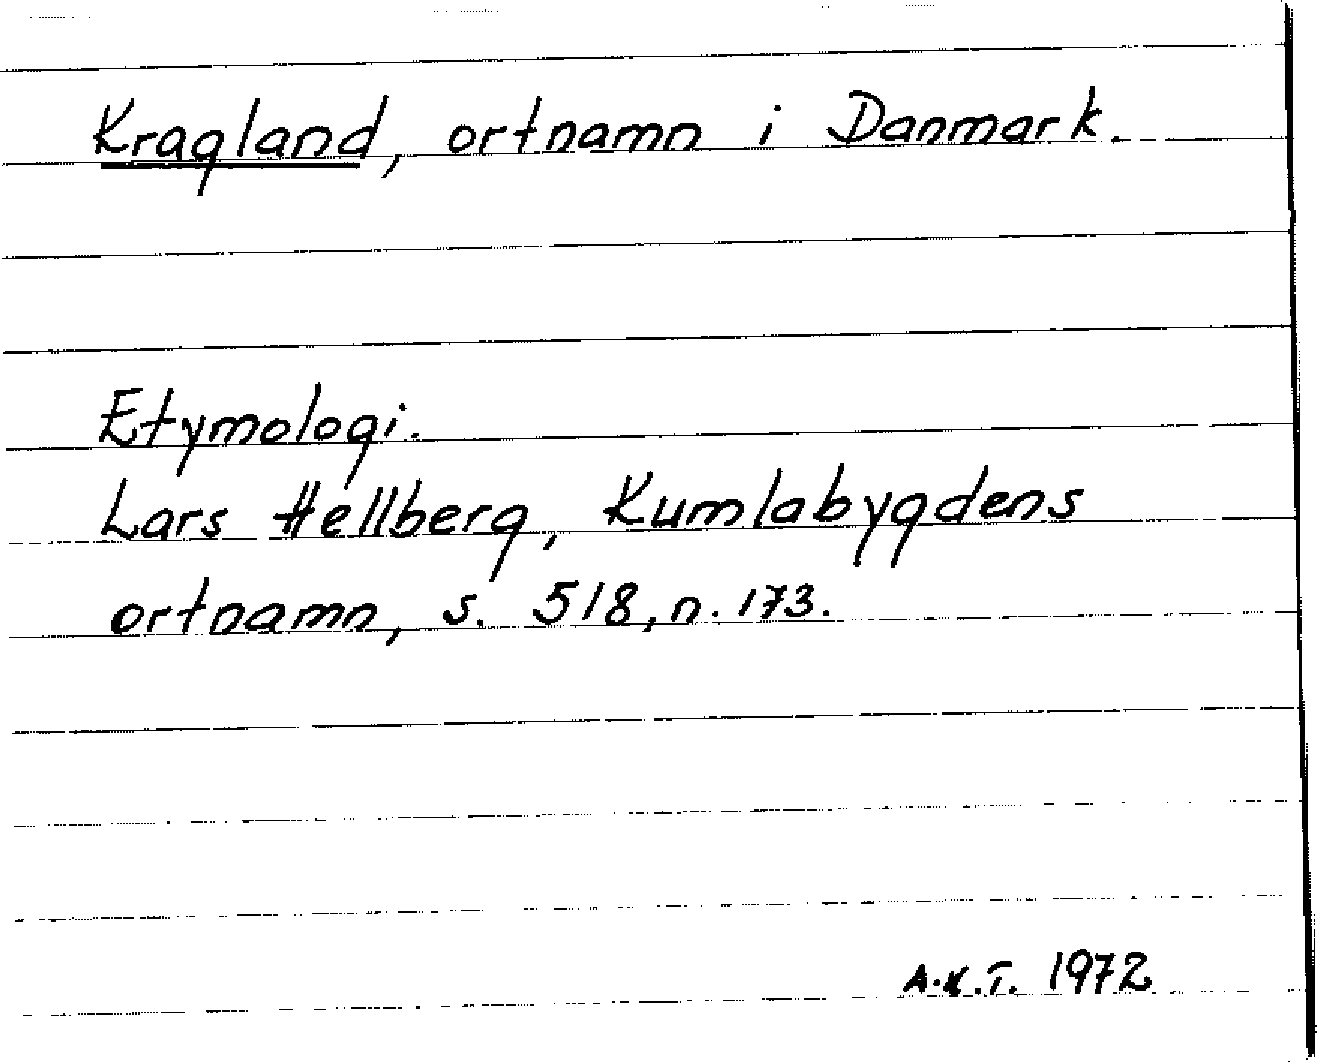 Kragland, ortnamn i Danmark.
Etymologi.
Lars Hellberg, Kumlabygdens
ortnamn, s. 518, n. 173.
A.K.T. 1972